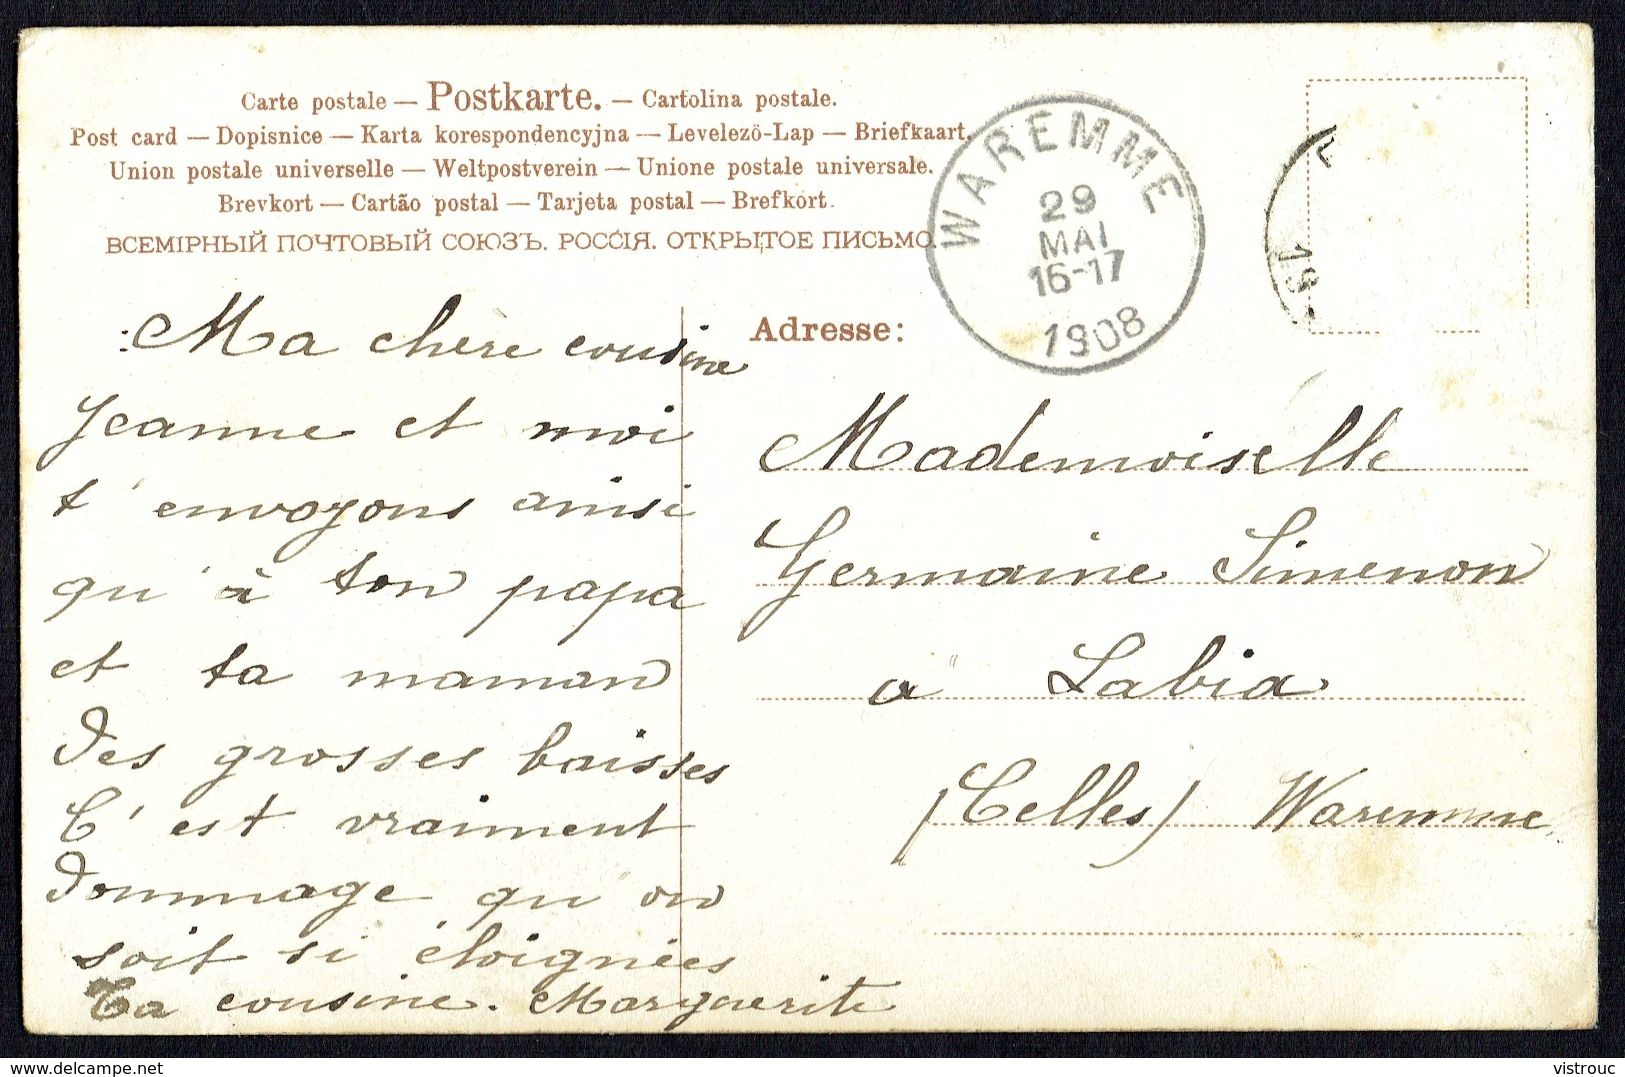 Carte postale — Postkarte. — Cartolina postale.
Post card — Dopisnice — Karta korespondencyjna — Levelezö-Lap — Briefkaart.
Union postale universelle — Weltpostverein — Unione postale universale.
Brevkort — Cartão postal — Tarjeta postal — Brefkort.
ВСЕМІРНЫЙ ПОЧТОВЫЙ СОЮЗЪ. РОССІЯ. ОТКРЫТОЕ ПИСЬМО.
WAREMME
29
MAI
16-17
1908
19
Ma chère cousine
Jeanne et moi
t'envoyons ainsi
qu'à ton papa
et ta maman
des grosses baisses
C'est vraiment
dommage qu'on
soit si éloignées
Ta cousine. Marguerite
Adresse:
Mademoiselle
Germaine Simenon
à Labia
(Celles) Waremme
vistrouc - delcampe.net